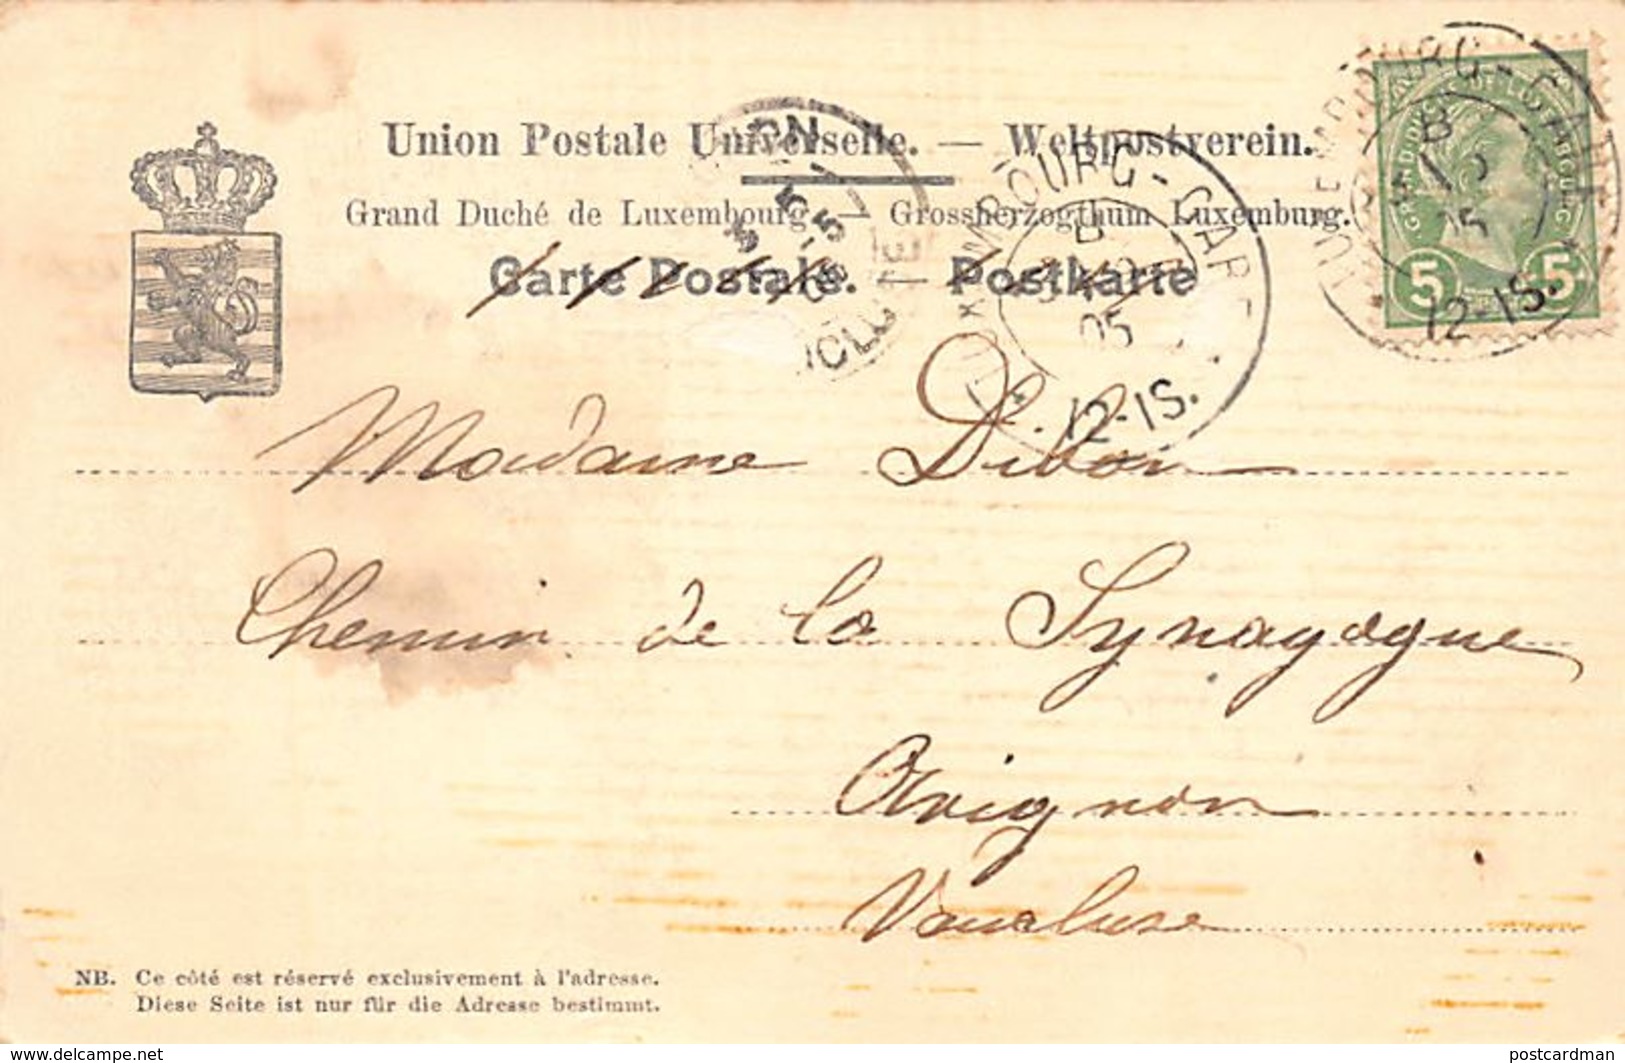 Union Postale Universelle. — Weltpostverein.
Grand Duché de Luxembourg. — Grossherzogthum Luxemburg.
Carte Postale. — Postkarte
LUXEMBOURG-GARE
B
05
12-1S.
LUXEMBOURG-GARE
B
05
12-1S.
5 5
Madame Dibon
Chemin de la Synagogue
Avignon
Vaucluse
NB. Ce côté est réservé exclusivement à l'adresse.
Diese Seite ist nur für die Adresse bestimmt.
www.delcampe.net
postcardman